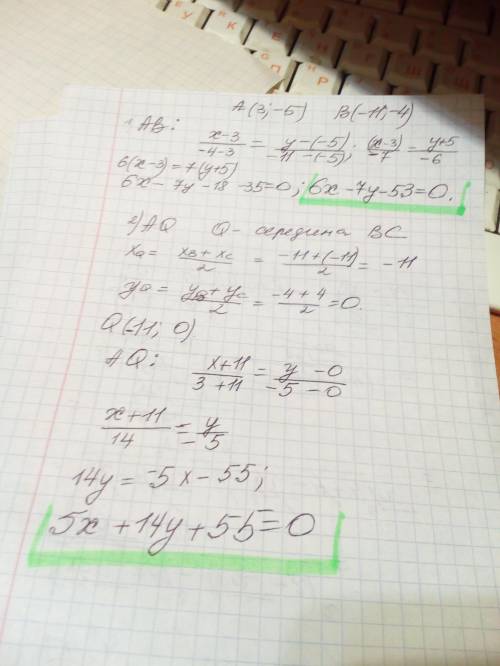 A(3; -5) B(-11; -4)
1. AB:
(x-3)/(-4-3) = (y-(-5))/(-11-(-5)); (x-3)/-7 = (y+5)/-6
6(x-3) = 7(y+5)
6x - 7y - 18 - 35 = 0; 6x - 7y - 53 = 0.
2) AQ Q - середина BC
xQ = (xB + xC)/2 = (-11 + (-11))/2 = -11
yQ = (yB + yC)/2 = (-4 + 4)/2 = 0.
Q(-11; 0)
AQ: (x+11)/(3+11) = (y-0)/(-5-0)
(x+11)/14 = y/-5
14y = -5x - 55;
5x + 14y + 55 = 0